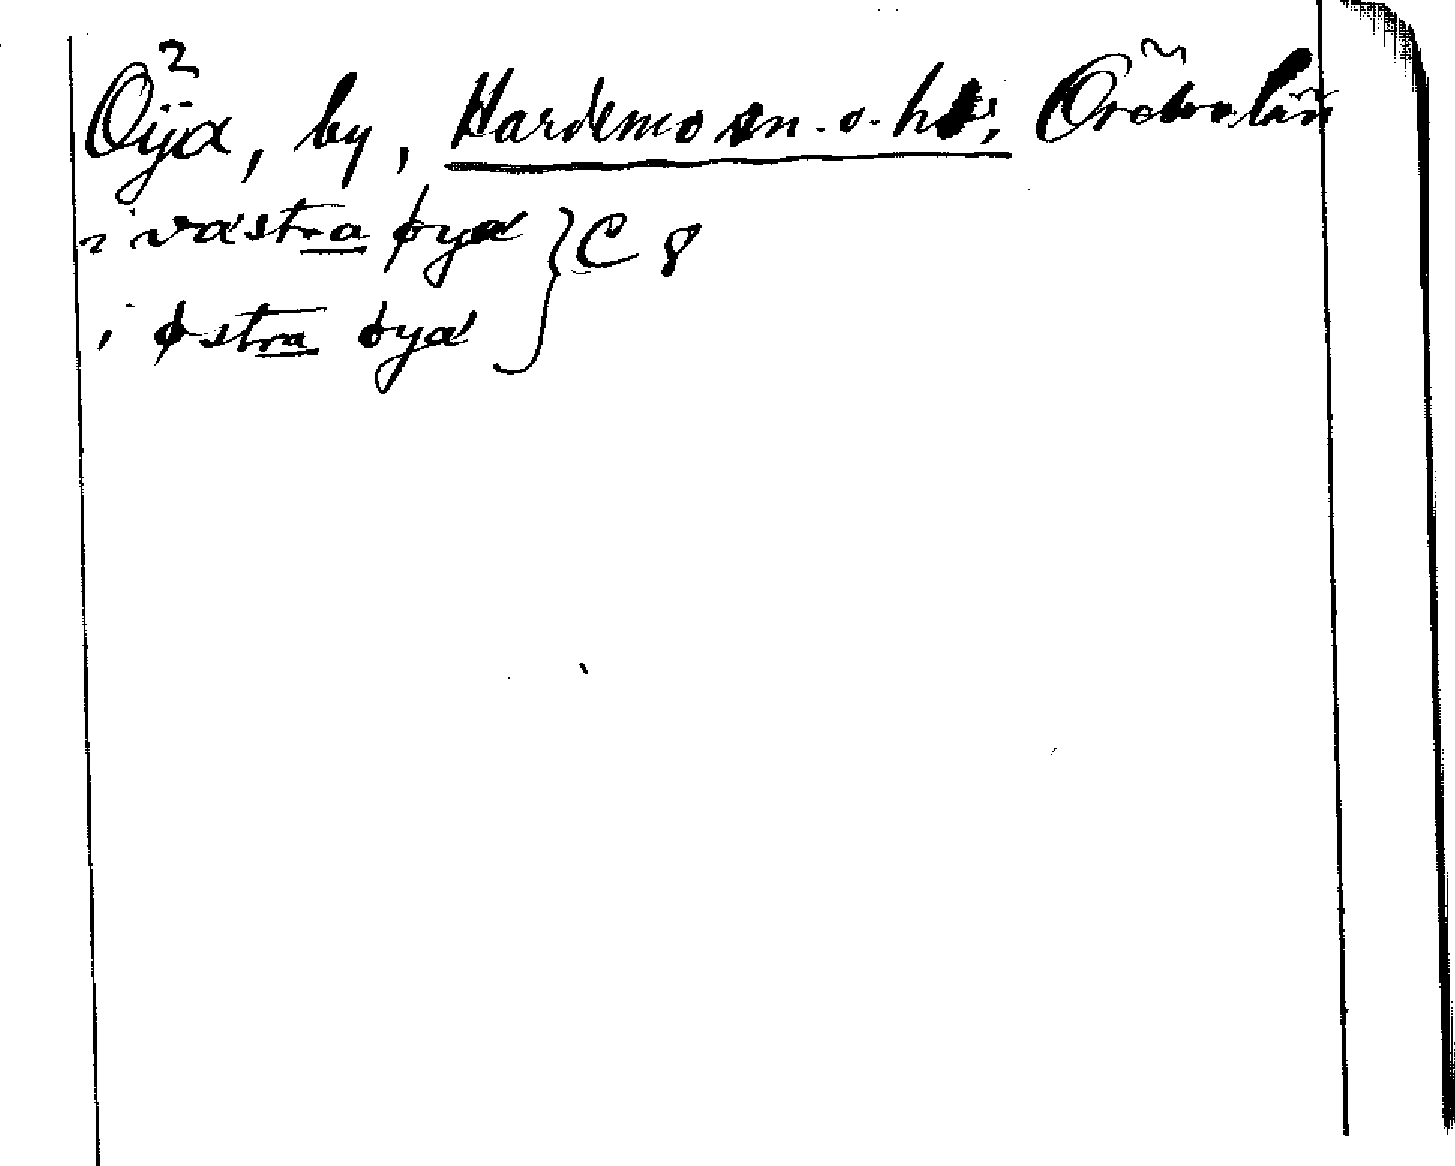 Öija, by, Hardemo sn. o. hd, Örebro län
i vastra øya } C 8
i østra øya